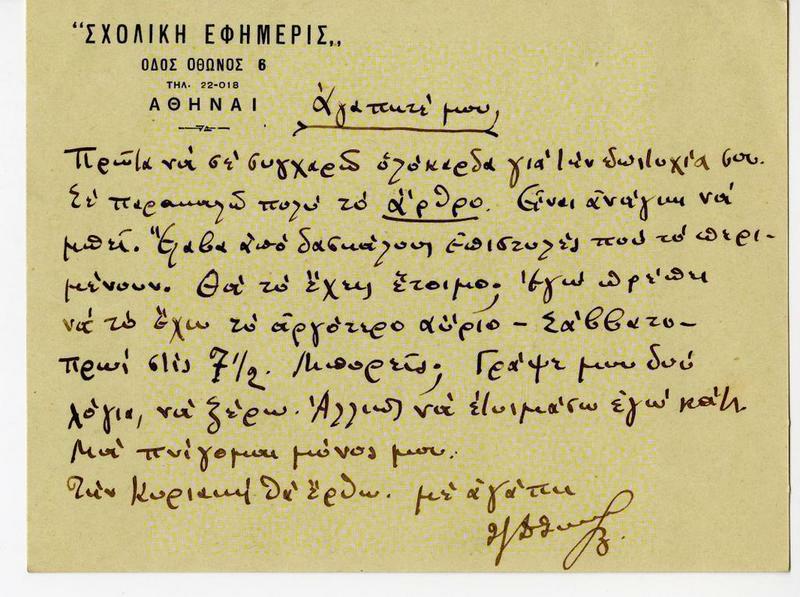 "ΣΧΟΛΙΚΗ ΕΦΗΜΕΡΙΣ„
ΟΔΟΣ ΟΘΩΝΟΣ 6
ΤΗΛ. 22-018
ΑΘΗΝΑΙ
Ἀγαπητέ μου,
Πρῶτα νὰ σὲ συγχαρῶ ὁλόκαρδα γιὰ τὴν εὐτυχία σου.
Σὲ παρακαλῶ πολὺ τὸ ἄρθρο. Εἶναι ἀνάγκη νὰ
μπεῖ. Ἔλαβα ἀπὸ δασκάλους ἐπιστολὲς ποὺ τὸ περι-
μένουν. Θὰ τὸ ἔχεις ἕτοιμο; Ἐγὼ πρέπει
νὰ τὸ ἔχω τὸ ἀργότερο αὔριο - Σάββατο -
πρωὶ στὶς 7 1/2. Μπορεῖς; Γράψε μου δυὸ
λόγια, νὰ ξέρω. Ἀλλιῶς νὰ ἑτοιμάσω ἐγὼ κάτι.
Μὰ πνίγομαι μόνος μου.
Τὴν Κυριακὴ θὰ ἔρθω. μὲ ἀγάπη